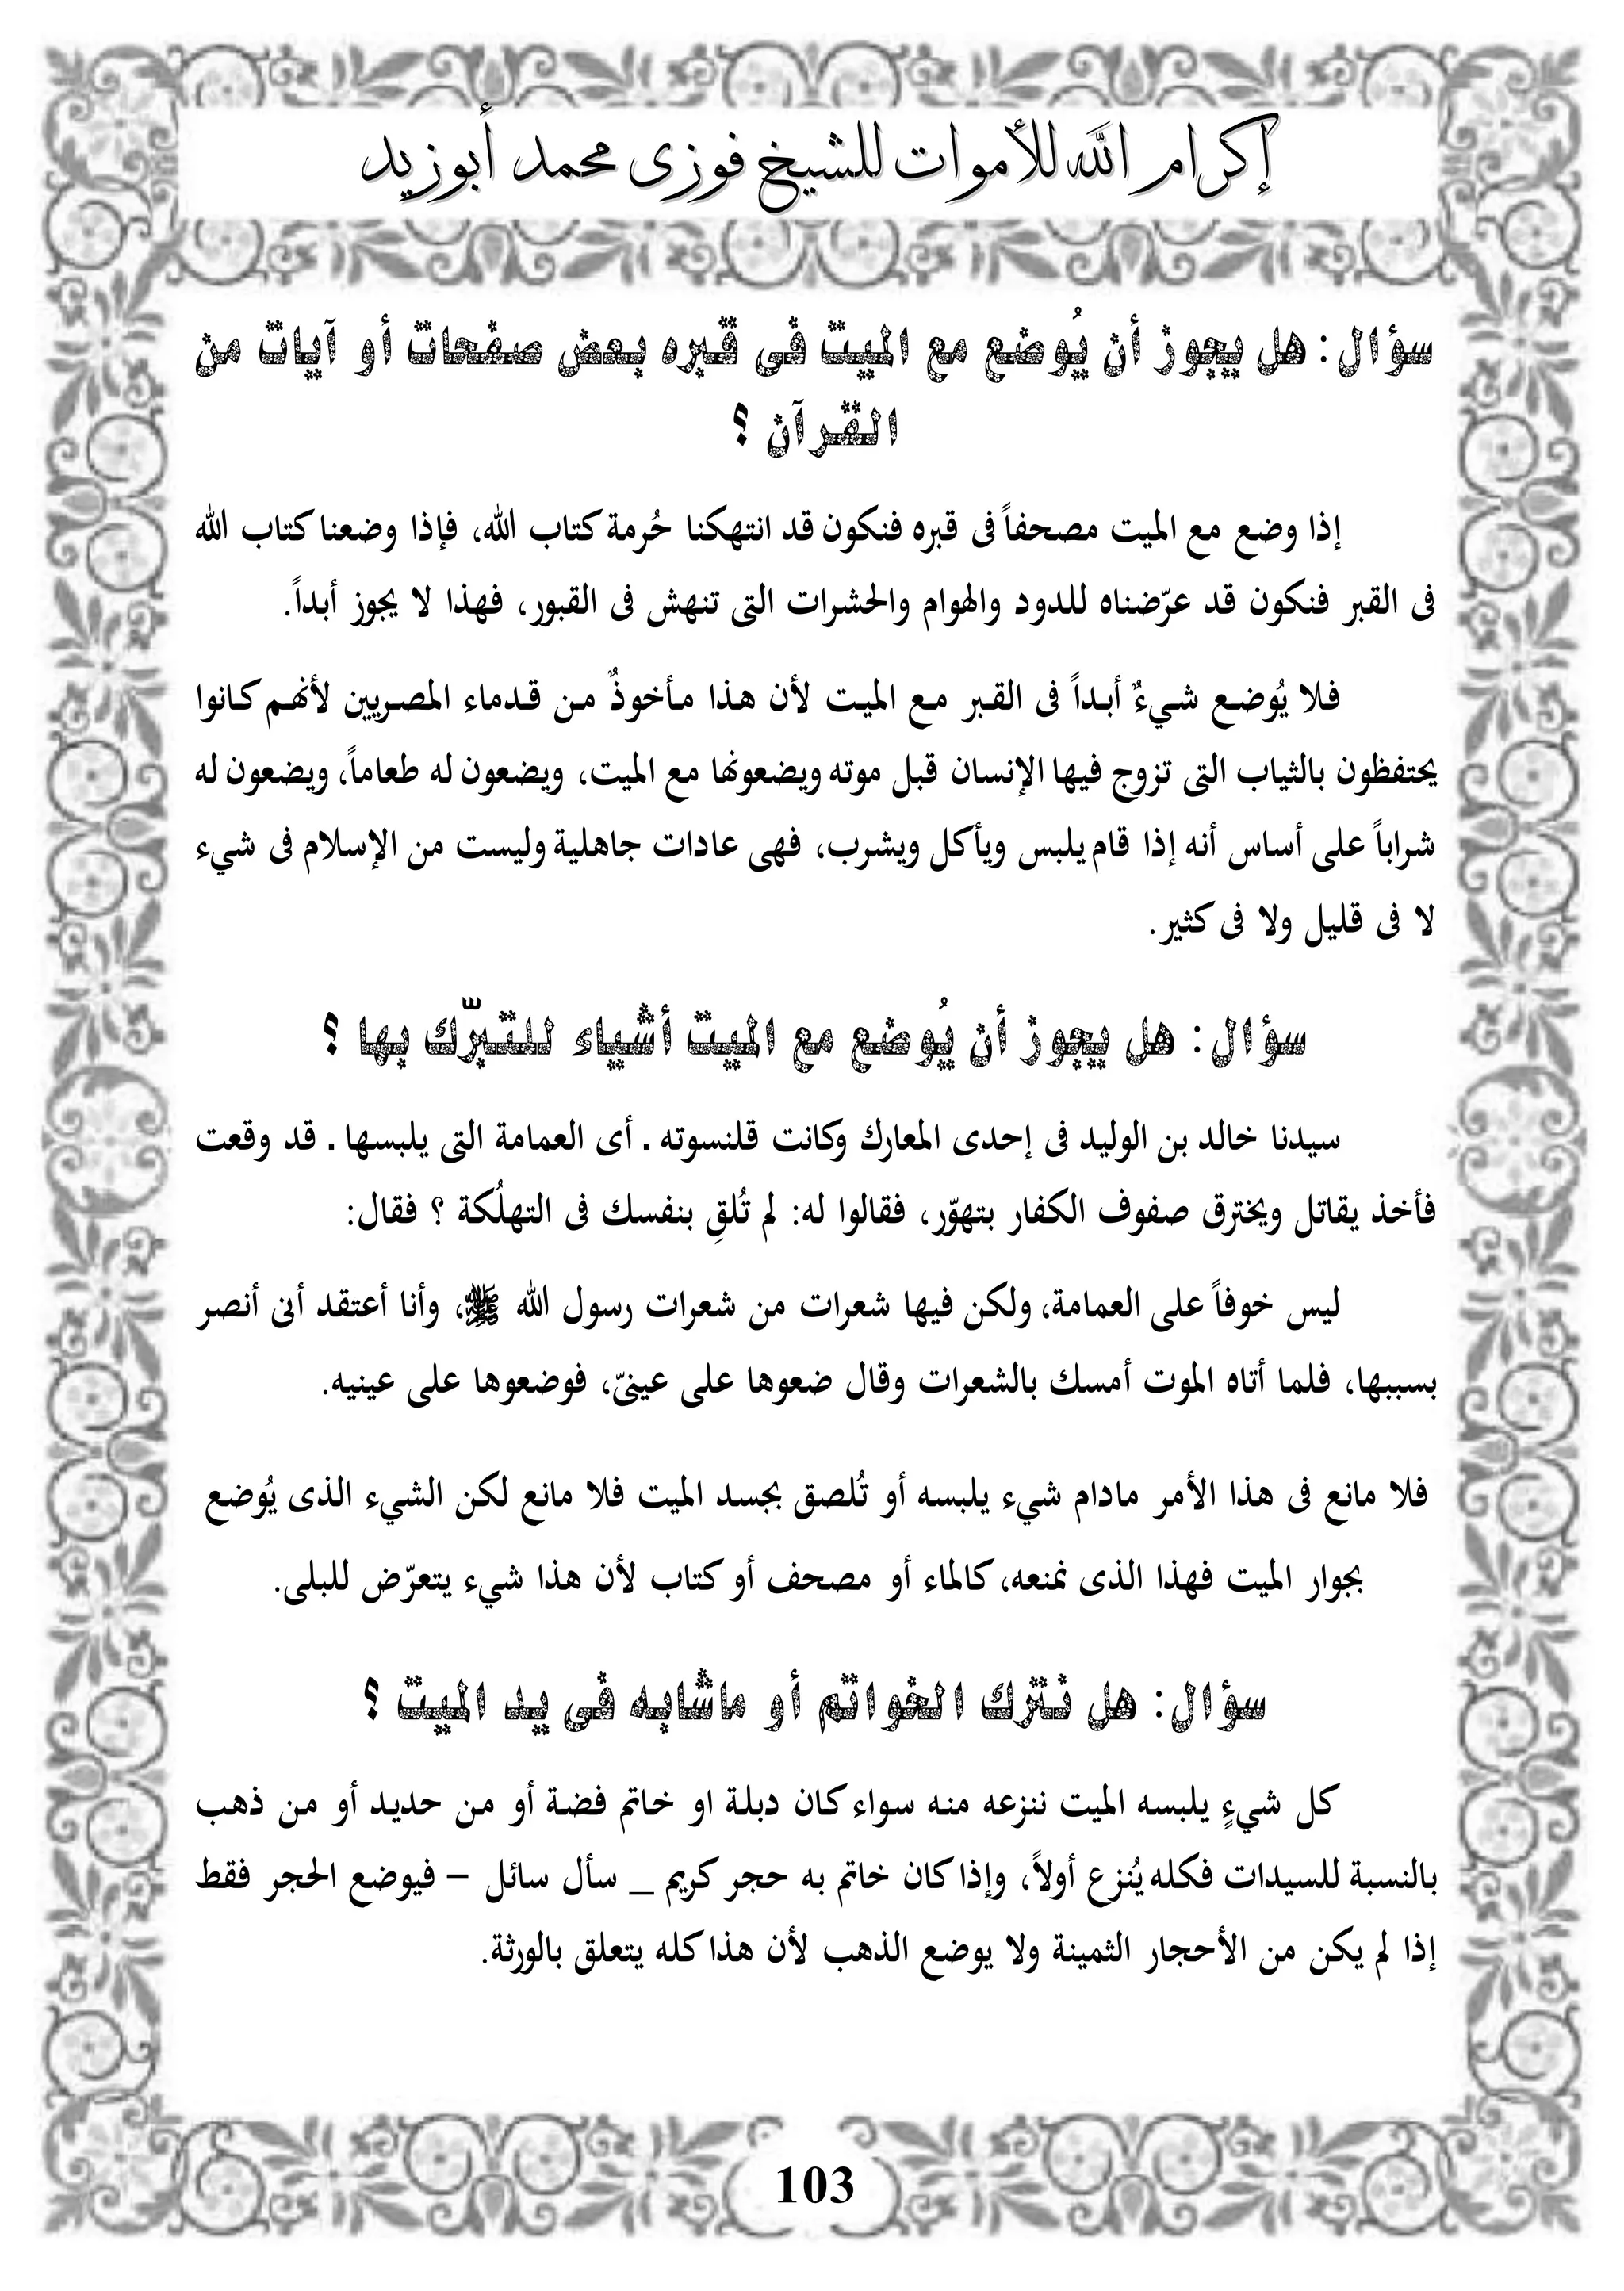 إكرام الله للأموات للشيخ فوزى محمد أبوزيد
سؤال: هل يجوز أن يُوضع مع الميت فى قبره بعض صفحات أو آيات من
القرآن ؟
إذا وضع مع الميت مصحفاً فى قبره فنكون قد انتهكنا حُرمة كتاب الله، فإذا وضعنا كتاب الله
فى القبر فنكون قد عرّضناه للدود والهوام والحشرات التى تنهش فى القبور، فهذا لا يجوز أبداً.
فلا يُوضع شيءٌ أبداً فى القبر مع الميت لأن هذا مأخوذٌ من قدماء المصريين لأنهم كانوا
يحتفظون بالثياب التى تزوج فيها الإنسان قبل موته ويضعونها مع الميت، ويضعون له طعاماً، ويضعون له
شراباً على أساس أنه إذا قام يلبس ويأكل ويشرب، فهى عادات جاهلية وليست من الإسلام فى شيء
لا فى قليل ولا فى كثير.
سؤال: هل يجوز أن يُوضع مع الميت أشياء للتبرّك بها ؟
سيدنا خالد بن الوليد فى إحدى المعارك وكانت قلنسوته . أى العمامة التى يلبسها . قد وقعت
فأخذ يقاتل ويخترق صفوف الكفار بتهوّر، فقالوا له: لم تُلقِ بنفسك فى التهلُكة ؟ فقال:
ليس خوفاً على العمامة، ولكن فيها شعرات من شعرات رسول الله ﷺ، وأنا أعتقد أنى أنصر
بسببها، فلما أتاه الموت أمسك بالشعرات وقال ضعوها على عينىّ، فوضعوها على عينيه.
فلا مانع فى هذا الأمر مادام شيء يلبسه أو تُلصق بجسد الميت فلا مانع لكن الشيء الذى يُوضع
بجوار الميت فهذا الذى نمنعه، كالماء أو مصحف أو كتاب لأن هذا شيء يتعرّض للبلى.
سؤال: هل نترك الخواتم أو ماشابه فى يد الميت ؟
كل شيءٍ يلبسه الميت ننزعه منه سواء كان دبلة او خاتم فضة أو من حديد أو من ذهب
بالنسبة للسيدات فكله يُنزع أولاً، وإذا كان خاتم به حجر كريم _ سأل سائل – فيوضع الحجر فقط
إذا لم يكن من الأحجار الثمينة ولا يوضع الذهب لأن هذا كله يتعلق بالورثة.
103